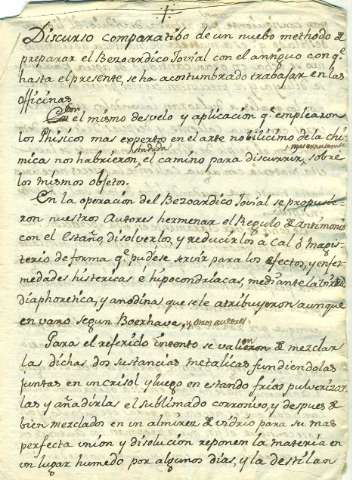 Discurso comparatibo de un nuebo methodo de
preparar el Bezoardico Jovial con el antiguo con qe
hasta el presente, se ha acostumbrado trabajar en las
officinas
el mismo desvelo y aplicacion qe emplearon
los Phisicos mas expertos en el arte nobilicimo de la chi
mica nos habrieron, el camino para discurrir, sobre
los mismos objetos.
En la operacion del Bezoardico Jovial se propusie
ron nuestros Autores hermenar el Regulo de Antimonio
con el Estaño, disolverlos, y reducirlos à Cal ô Magis
terio de forma qe pudese servir para los efectos, y enfer
medades histericas è hipocondriacas mediante la
diaphoretica, y anodina que se le atribuyeron aunque
en vano segun Boerhave, y otros autores
Para el referido intento se valieron de mezclar
las dichas dos sustancias metalicas fundiendolas
juntas en un crisol y luego en estando frias pulverizar
las y añadirlas el sublimado corrosivo, y despues de
bien mezclados en un almirez de vidrio para su mas
perfecta union y disolucion reponen la materia en
un lugar humedo por algunos dias, y la destilan